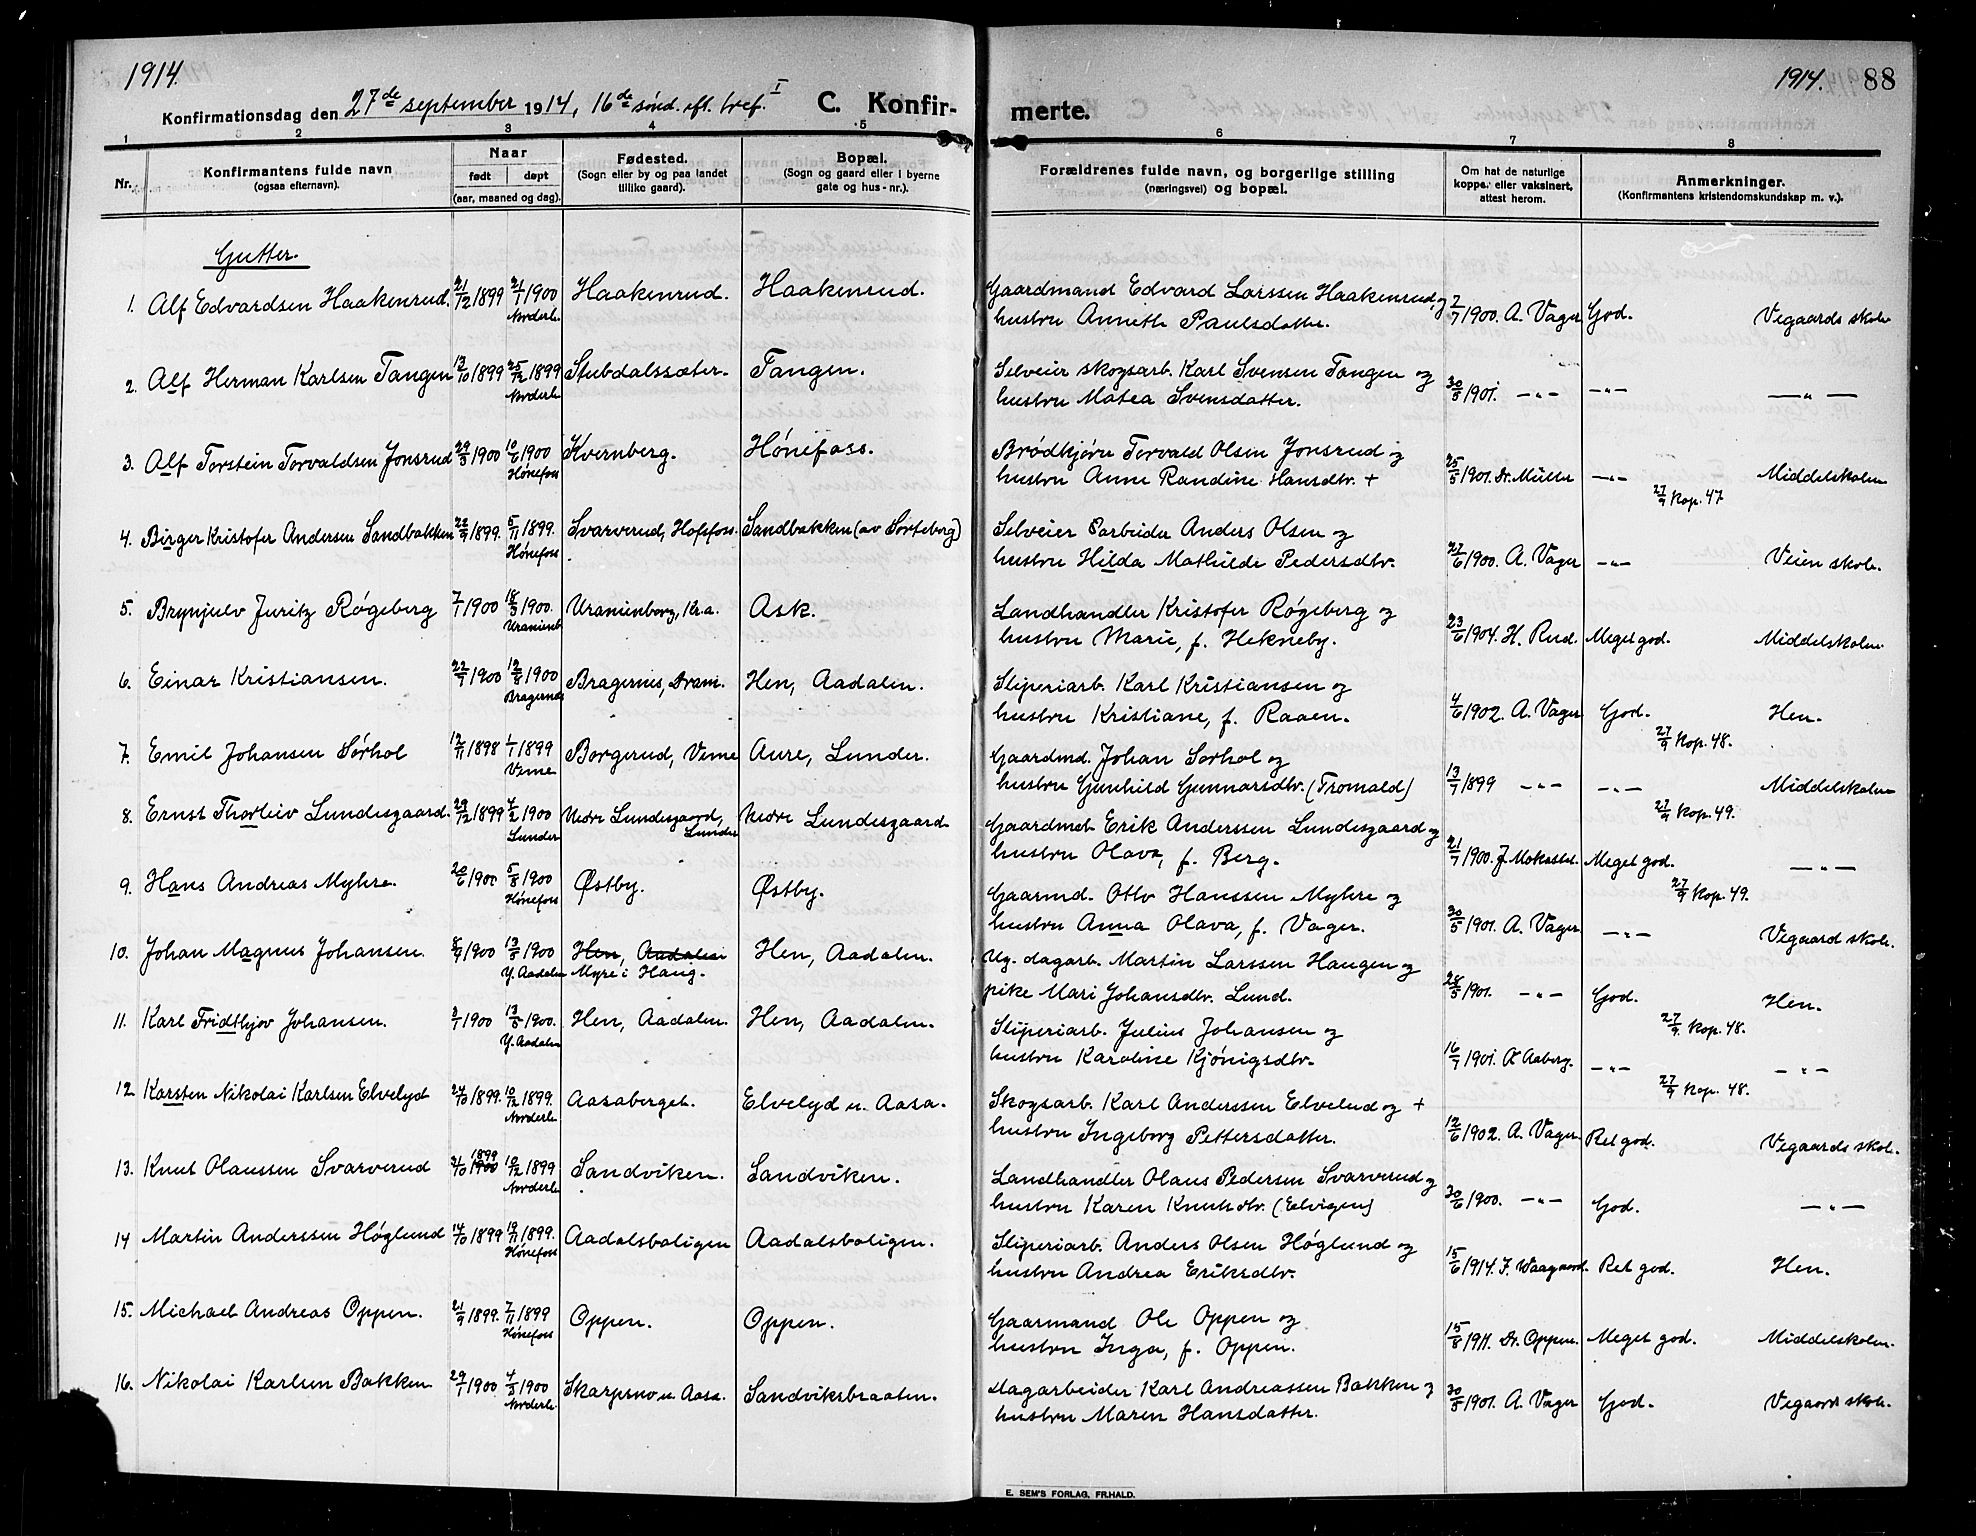 1914.
Konfirmationsdag den 27de september 1914, 16de sønd. eft. tref. I
C. Konfir-
1 2 3 4 5
Nr.
Konfirmantens fulde navn
(ogsaa efternavn).
Naar
født døpt
(aar, maaned og dag).
Fødested.
(Sogn eller by og paa landet
tillike gaard).
Bopæl.
(Sogn og gaard eller i byerne
gate og hus-nr.).
1914. 88
merte.
6 7 8
Forældrenes fulde navn, og borgerlige stilling
(næringsvei) og bopæl.
Om hat de naturlige
koppe. eller vaksinert,
attest herom.
Anmerkninger.
(Konfirmantens kristendomskundskap m. v.).
Gutter.
1. Alf Edvardsen Haakenrud. 21/12 1899 21/1 1900 Haakenrud. Haakenrud. Gaardmand Edvard Larssen Haakenrud og
Norderh. hustru Annethe Paulsdatter. 2/7 1900. A. Vager God. Vegaards skole
2. Alf Herman Karlsen Tangen 13/10 1899 25/12 1899 Stubdalssæter. Tangen. Selveier skogsarb. Karl Svensen Tangen og
Norderh. hustru Matea Svensdatter. 30/5 1901. —„— —„— —„—
3. Alf Torstein Torvaldsen Jonsrud 29/3 1900 10/6 1900 Kvernberg. Hønefoss. Brødkjører Torvald Olsen Jonsrud og
Hønefoss hustru Anne Randine Hansdtr. + 25/5 1901. Dr. Müller —„— Middelskolen
27/9 Kop. 47
4. Birger Kristofer Andersen Sandbakken 22/9 1899. 5/11 1899. Svarverud, Hofsfoss. Sandbakken (av Sorteberg) Selveier Anders Olsen og
Hønefoss hustru Hilda Mathilde Pedersdtr. 27/6 1900. A. Vager —„— Veien skole.
5. Brynjulv Juritz Røgeberg 7/1 1900 18/3 1900. Uranienborg, Kr.a. Ask. Landhandler Kristofer Røgeberg og
Uranienb. hustru Marie, f. Hekneby. 23/6 1904. H. Rud. Meget god. Middelskolen.
6. Einar Kristiansen. 22/7 1900 12/8 1900 Bragernes, Dram. Hen, Aadalen. Sliperiarb. Karl Kristiansen og
Bragernes hustru Kristiane, f. Raaen. 4/6 1902. A. Vager God. Hen.
27/9 Kop. 48.
7. Emil Johansen Sørhol 12/11 1898 1/1 1899 Borgerud, Veme Aure, Lunder. Gaardmd. Johan Sørhol og
Veme hustru Gunhild Gunnarsdtr. (Tromald) 13/7 1899 —„— —„— Middelskolen
27/9 Kop. 49.
8. Ernst Thorleiv Lundesgaard. 29/12 1899 4/2 1900 Nedre Lundesgaard, Lunder Nedre Lundesgaard Gaardmd. Erik Anderssen Lundesgaard og
Lunder hustru Olava, f. Berg. 21/7 1900. J. Mokastet. Meget god. —„—
27/9 Kop. 49.
9. Hans Andreas Myhre. 20/6 1900 5/8 1900 Østby. Østby. Gaarmd. Otto Hanssen Myhre og
Hønefoss hustru Anna Olava, f. Vager. 30/5 1901. A. Vager —„— Vegaard skole.
10. Johan Magnus Johansen. 8/4 1900 13/5 1900 Hen, Aadalen Hen, Aadalen. Ug. dagarb. Martin Larssen Haugen og
Y. Aadalen Myre i Haug. pike Mari Johansdtr. Lund. 28/5 1901. —„— God. Hen.
27/9. Kop. 48.
11. Karl Fridthjov Johansen. 3/1 1900 13/5 1900. Hen, Aadalen. Hen, Aadalen. Sliperiarb. Julius Johansen og
Y. Aadalen hustru Karoline Kjønigsdtr. 16/7 1901. A Aaberg. —„— —„—
27/9 Kop. 48.
12 Karsten Nikolai Karlsen Elvelyd 24/10 1899. 10/12 1899. Aasaberget. Elvelyd u. Aasa. Skogsarb. Karl Anderssen Elvelud og +
Norderh. hustru Ingeborg Pettersdatter. 12/6 1902. A. Vager. Ret god. Vegaards skole.
13. Knut Olaussen Svarverud 31/10 1900 1899 10/12 1899 Sandviken. Sandviken. Landhandler Olaus Pedersen Svarverud og
Norderh. hustru Karen Knutsdtr. (Elvigen) 30/6 1900. —„— God. —„—
14 Martin Anderssen Høglund 14/10 1899 19/11 1899. Aadalsboligen Aadalsboligen. Sliperiarb. Anders Olsen Høglund og
Hønefoss hustru Andrea Eriksdtr. 15/6 1914. F. Waagaard. Ret god. Hen.
15. Michael Andreas Oppen. 21/9 1899. 7/11 1899 Oppen. Oppen. Gaarmand Ole Oppen og
Hønefoss hustru Inga, f. Oppen. 15/8 1911. Dr. Oppen. Meget god. Middelskolen.
16. Nikolai Karlsen Bakken 29/1 1900. 4/3 1900 Skarpsno u. Aasa. Sandviksbraaten. Dagarbeider Karl Andreassen Bakken og
Norderh. hustru Maren Hansdatter. 30/5 1901. A. Vager God. Vegaard skole.
E. SEM'S FORLAG, FR.HALD.